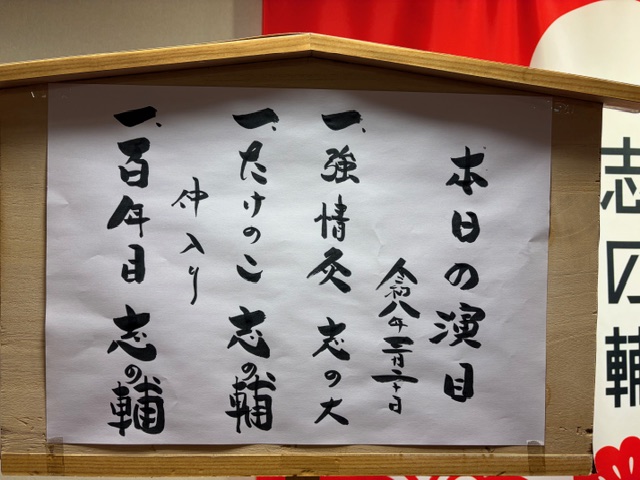 本日の演目
令和八年三月二十日
一、強情灸 志の大
一、たけのこ 志の輔
仲入り
一、百年目 志の輔
志の輔